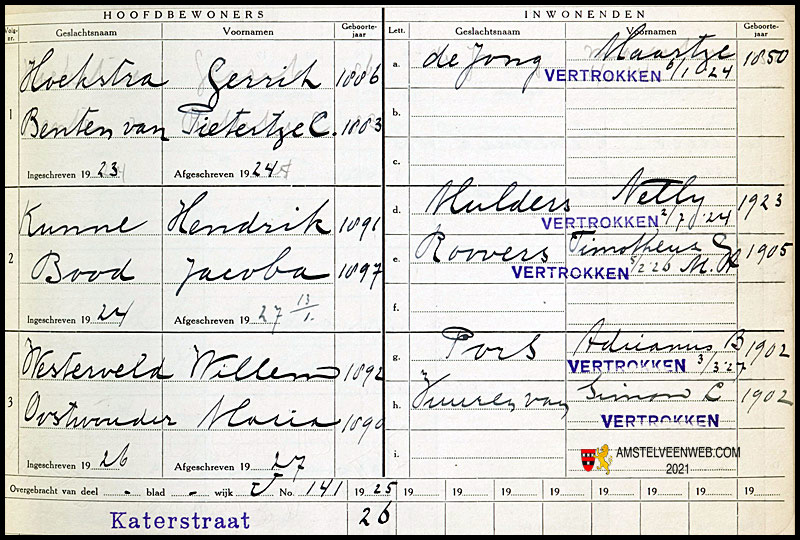 HOOFDBEWONERS
Volg-nr. Geslachtsnaam Voornamen Geboorte-jaar
1 Hoekstra Gerrit 1886
Benten van Pietertje C. 1883
Ingeschreven 19 23 Afgeschreven 19 24
2 Kunne Hendrik 1891
Bood Jacoba 1897
Ingeschreven 19 24 Afgeschreven 19 27 13/1.
3 Westerveld Willem 1892
Oostwouder Maria 1890
Ingeschreven 19 26 Afgeschreven 19 27
INWONENDEN
Lett. Geslachtsnaam Voornamen Geboorte-jaar
a. de Jong Maartje 1850
VERTROKKEN 6/1 24
b.
c.
d. Mulders Nelly 1923
VERTROKKEN 2/7 '24
e. Roovers Timotheus G 1905
VERTROKKEN 5/2 26 M.
f.
g. Pors Adrianus B 1902
VERTROKKEN 3/3 '27
h. Vuuren van Simon C 1902
VERTROKKEN
i.
AMSTELVEENWEB.COM
2021
Overgebracht van deel - blad - wijk J No. 141 19 25 19 19 19 19 19 19 19 19
Katerstraat 26